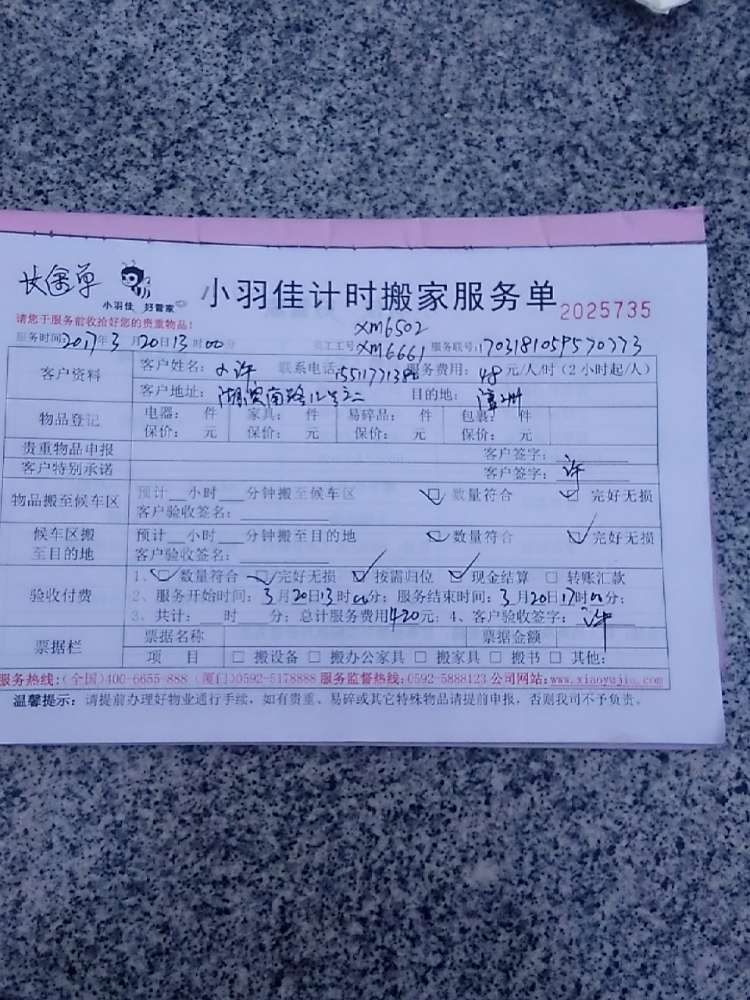 长途单
小羽佳 好管家
小羽佳计时搬家服务单
2025735
请您于服务前收拾好您的贵重物品!
XM6502
服务时间:2017年3月20日13时00分 员工工号:XM6661 服务联号:
客户资料 客户姓名:小许 联系电话: 服务费用:48元/人/时(2小时起/人)
客户地址:湖滨南路 目的地:漳州
物品登记 电器: 件 家具: 件 易碎品: 件 包裹: 件
保价: 元 保价: 元 保价: 元 保价: 元
贵重物品申报 客户签字:
客户特别承诺 客户签字:许
物品搬至候车区 预计__小时___分钟搬至候车区 ☑数量符合 ☑完好无损
客户验收签名:
候车区搬至目的地 预计__小时___分钟搬至目的地 ☑数量符合 ☑完好无损
客户验收签名:
验收付费 1、☑数量符合 ☑完好无损 ☑按需归位 ☑现金结算 □转账汇款
2、服务开始时间:3月20日13时00分;服务结束时间:3月20日17时00分;
3、共计: 时 分;总计服务费用420元;4、客户验收签字:许
票据栏 票据名称 票据金额
项 目 □搬设备 □搬办公家具 □搬家具 □搬书 □其他:
服务热线:(全国)400-6655-888 (厦门)0592-5178888 服务监督热线:0592-5888123 公司网站:www.xiaoyujia.com
温馨提示:请提前办理好物业通行手续,如有贵重、易碎或其它特殊物品请提前申报,否则我司不予负责。